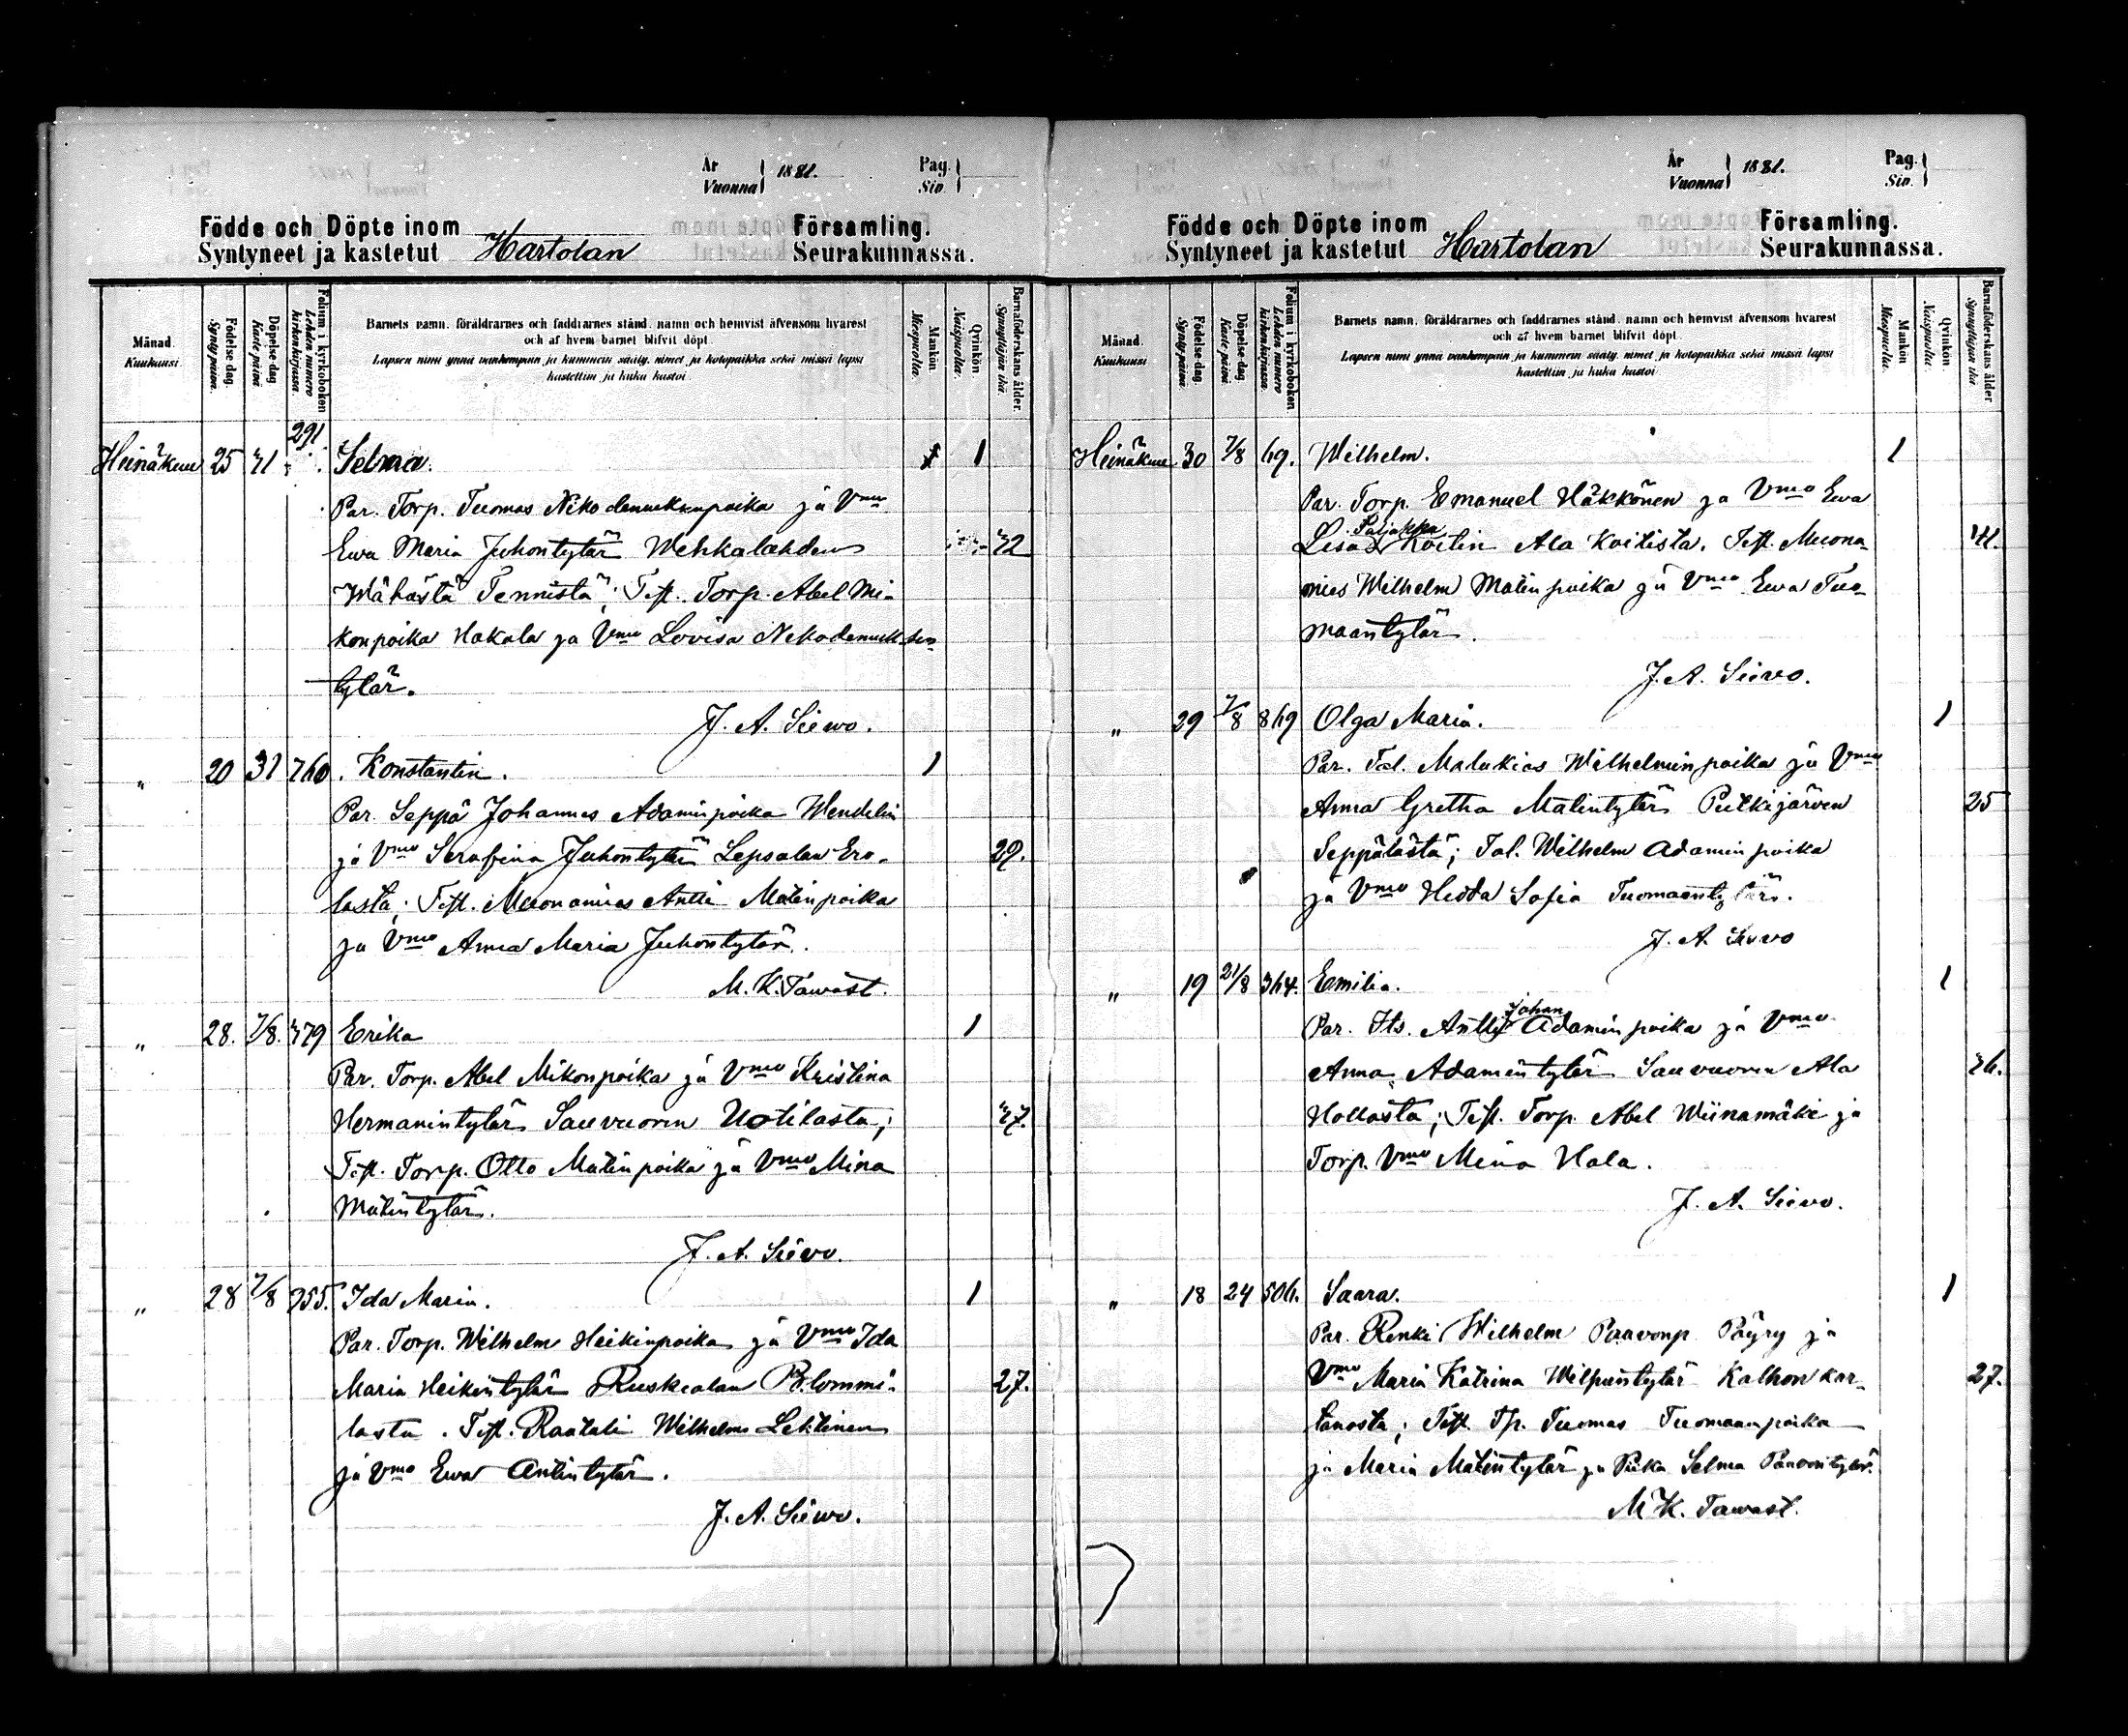 År
Vuonna 1881.
Pag.
Siv.
Födde och Döpte inom Församling.
Syntyneet ja kastetut Hartolan Seurakunnassa.
Månad.
Kuukausi.
Födelse dag.
Synty päivä.
Döpelse dag
Kaste päivä.
Folium i kyrkoboken
Lehden numero
kirkonkirjassa.
Barnets namn, föräldrarnes och faddrarnes stånd, namn och hemvist äfvensom hvarest
och af hvem barnet blifvit döpt.
Lapsen nimi ynnä vanhempain ja kummein sääty, nimet ja kotopaikka sekä missä lapsi
kastettiin ja kuka kastoi.
Mankön
Miespuolta.
Qvinkön.
Naispuolta.
Barnaföderskans ålder.
Synnyttäjän ikä.
291
Heinäkuu 25 31 Selma. 1
Par. Torp. Tuomas Nikodemuksenpoika ja Vmo
Ewa Maria Juhontytär Wehkalahden 32
Wähästä Tennistä; Test. Torp. Abel Mi-
konpoika Hakala ja Vmo Lovisa Nikodemuksen
tytär.
J. A. Siewo.
„ 20 31 760. Konstantin. 1
Par. Seppä Johannes Adaminpoika Wendelin
ja Vmo Serafina Juhontytär Lepsalan Ero-
lasta; Test. Muonamies Antti Matinpoika 29.
ja Vmo Anna Maria Juhontytär.
M. K. Tawast.
„ 28. 7/8. 379 Erika 1
Par. Torp. Abel Mikonpoika ja Vmo Kristina
Hermanintytär Sauvuoren Uotilasta; 37.
Test. Torp. Otto Matinpoika ja Vmo Mina
Matintytär.
J. A. Siewo.
„ 28 7/8 955. Ida Maria. 1
Par. Torp. Wilhelm Heikinpoika ja Vmo Ida
Maria Heikintytär Ruskealan 27.
lasta. Test. Raatali Wilhelm Lehtinen
ja Vmo Ewa Antintytär.
J. A. Siewo.
År
Vuonna 1881.
Pag.
Siv.
Födde och Döpte inom Församling.
Syntyneet ja kastetut Hartolan Seurakunnassa.
Månad.
Kuukausi
Födelse dag
Synty päivä.
Döpelse dag
Kaste päivä.
Folium i kyrkoboken
Lehden numero
kirkonkirjassa.
Barnets namn, föräldrarnes och faddrarnes stånd, namn och hemvist äfvensom hvarest
och af hvem barnet blifvit döpt.
Lapsen nimi ynnä vanhempain ja kummein sääty, nimet ja kotopaikka sekä missä lapsi
kastettiin ja kuka kastoi
Mankön
Miespuolta.
Qvinkön
Naispuolta
Barnaföderskans ålder
Synnyttäjän ikä
Heinäkuu 30 7/8 69. Wilhelm. 1
Par. Torp. Emanuel Häkkönen ja Vmo Ewa
Paljakka
Lisa Koitin Ala Koitista. Test. Muona- 41.
mies Wilhelm Matinpoika ja Vmo Ewa Tuo-
maantytär.
J. A. Siewo.
„ 29 7/8 869 Olga Maria. 1
Par. Tal. Malakias Wilhelminpoika ja Vmo
Anna Gretha Matintytär Putkijärven 25
Seppälästä; Tal. Wilhelm Adaminpoika
ja Vmo Hedda Sofia Tuomaantytär.
J. A. Siewo
„ 19 21/8 364. Emilia. 1
Johan
Par. Its. Antti Adaminpoika ja Vmo
Anna Adamintytär Sauvuoren Ala 36.
Hollasta; Test. Torp. Abel Wiinamäki ja
Torp. Vmo Mina Hala.
J. A. Siewo.
„ 18 24 506. Saara. 1
Par. Renki Wilhelm Paavonp. Päyry ja
Vmo Maria Katrina Wilpuntytär Kalhon kar- 27.
tanosta; Test. Tp. Tuomas Tuomaanpoika
ja Maria Matintytär ja Piika Selma Paavontytär.
M K. Tawast.